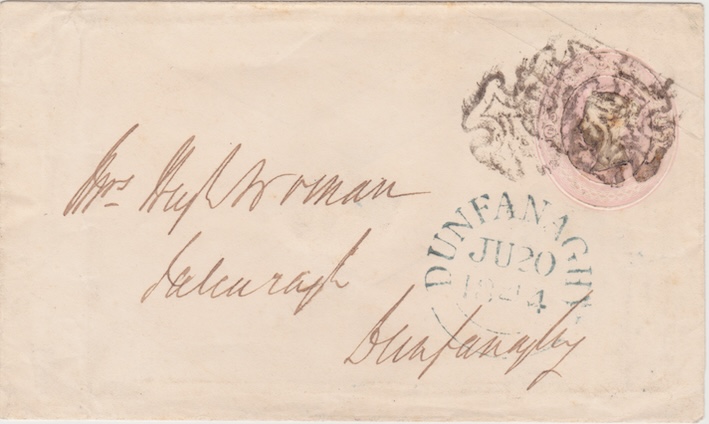 Mrs Hugh Wroman
Falcurragh
Dunfanaghy
DUNFANAGHY
JU20
1844